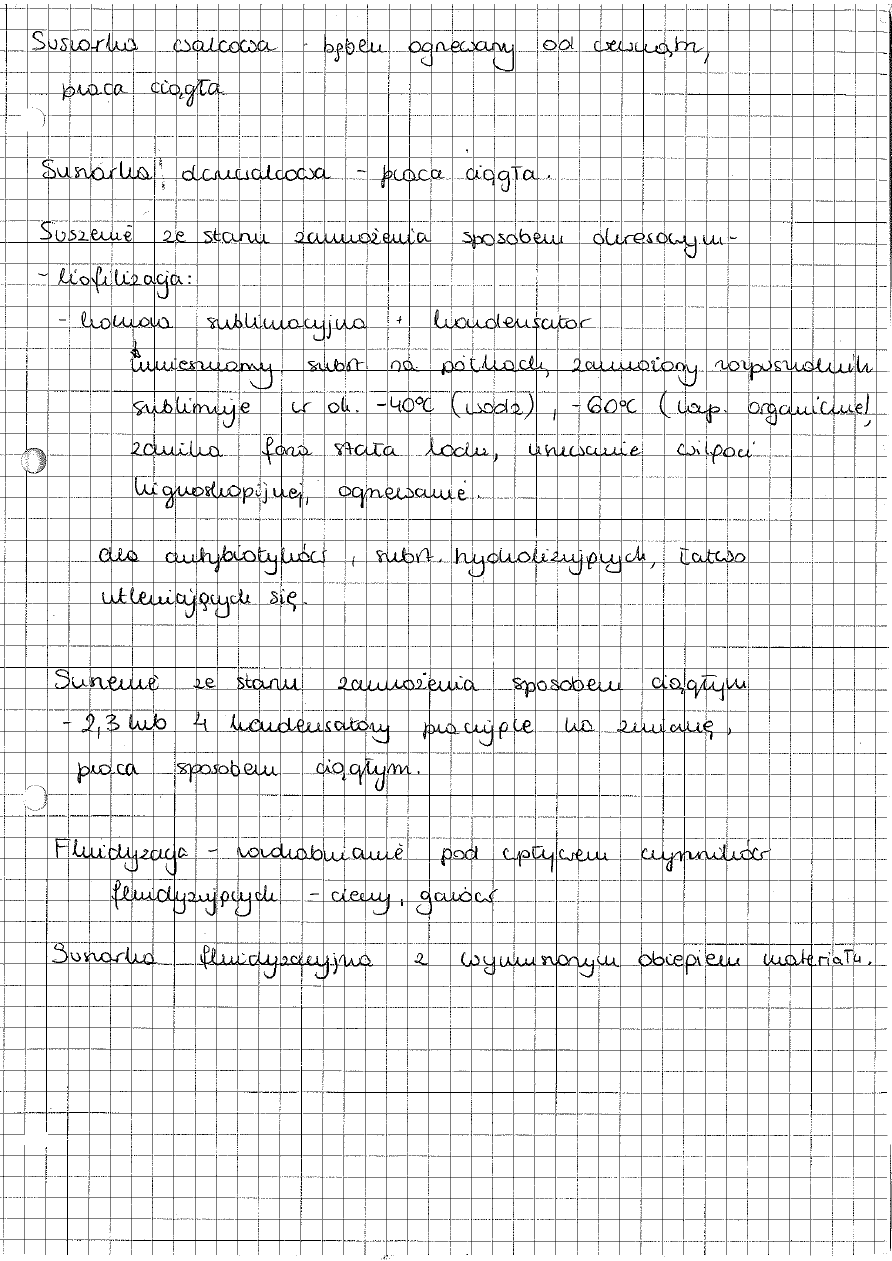 Suszarka walcowa - bęben ogrzewany od wewnątrz,
praca ciągła
Suszarka dwuwalcowa - praca ciągła.
Suszenie ze stanu zamrożenia sposobem okresowym -
- liofilizacja:
- komora sublimacyjna + kondensator
umieszczamy subst. na półkach, zamrożony rozpuszczalnik
sublimuje w ok. -40°C (woda), -60°C (rozp. organiczne)
zanika faza stała lodu, usuwanie wilgoci
higroskopijnej, ogrzewanie.
dla antybiotyków, subst. hydrolizujących, łatwo
utleniających się.
Suszenie ze stanu zamrożenia sposobem ciągłym
- 2,3 lub 4 kondensatory pracujące na zmianę,
praca sposobem ciągłym.
Fluidyzacja - rozdrabnianie pod wpływem czynników
fluidyzujących - cieczy, gazów
Suszarka fluidyzacyjna z wymuszonym obiegiem materiału.